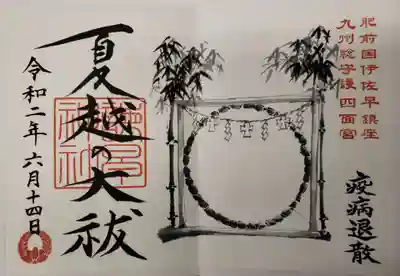 肥前国伊佐早鎮座
九州総守護四面宮
疫病退散
夏越の大祓
令和二年六月十四日